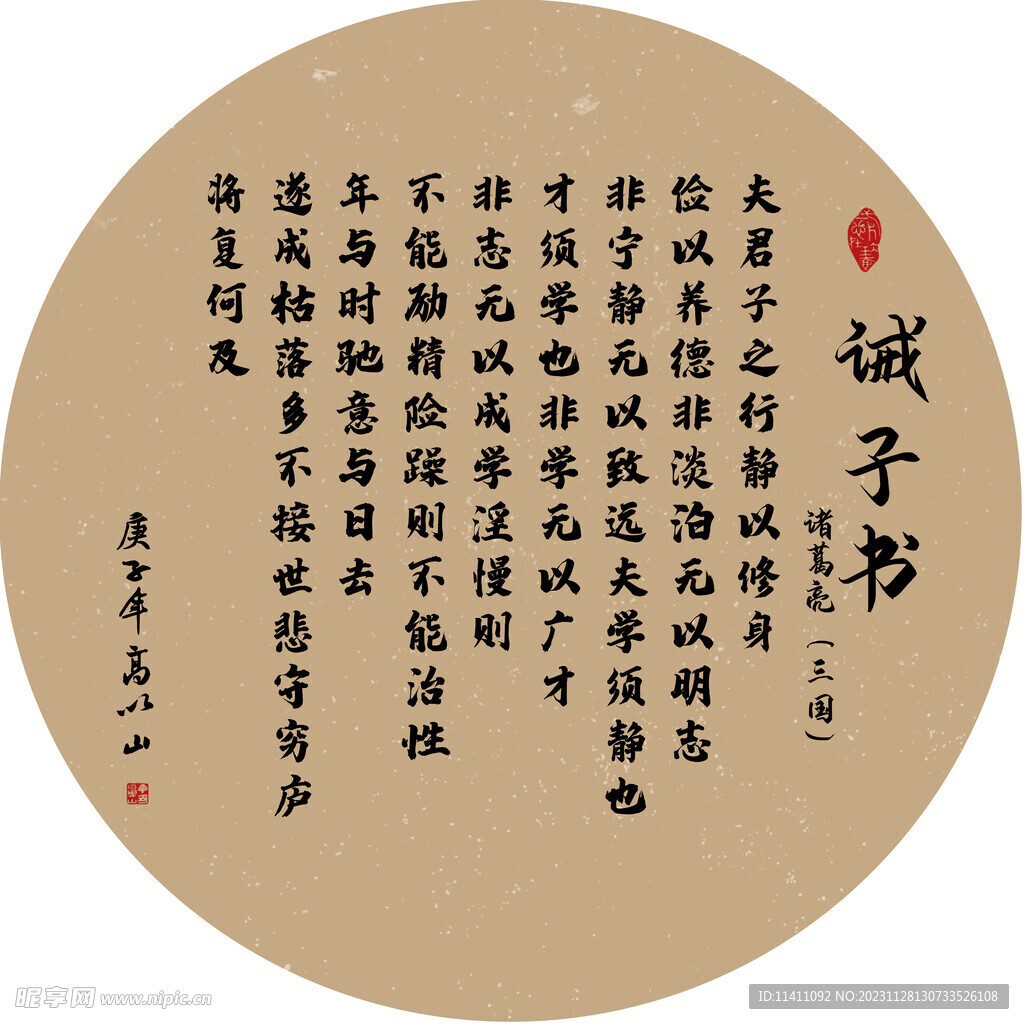 诫子书
诸葛亮（三国）
夫君子之行静以修身
俭以养德非淡泊无以明志
非宁静无以致远夫学须静也
才须学也非学无以广才
非志无以成学淫慢则
不能励精险躁则不能治性
年与时驰意与日去
遂成枯落多不接世悲守穷庐
将复何及
庚子年高以山
昵享网 www.nipic.cn
ID:11411092 NO:20231128130733526108